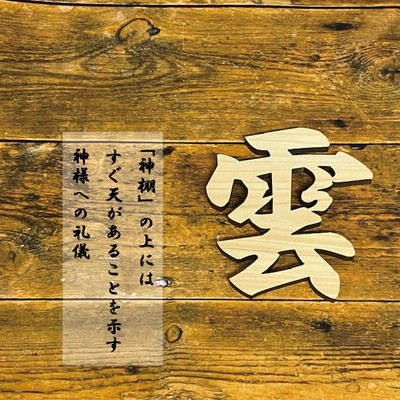 雲
「神棚」の上には
すぐ天があることを示す
神様への礼儀